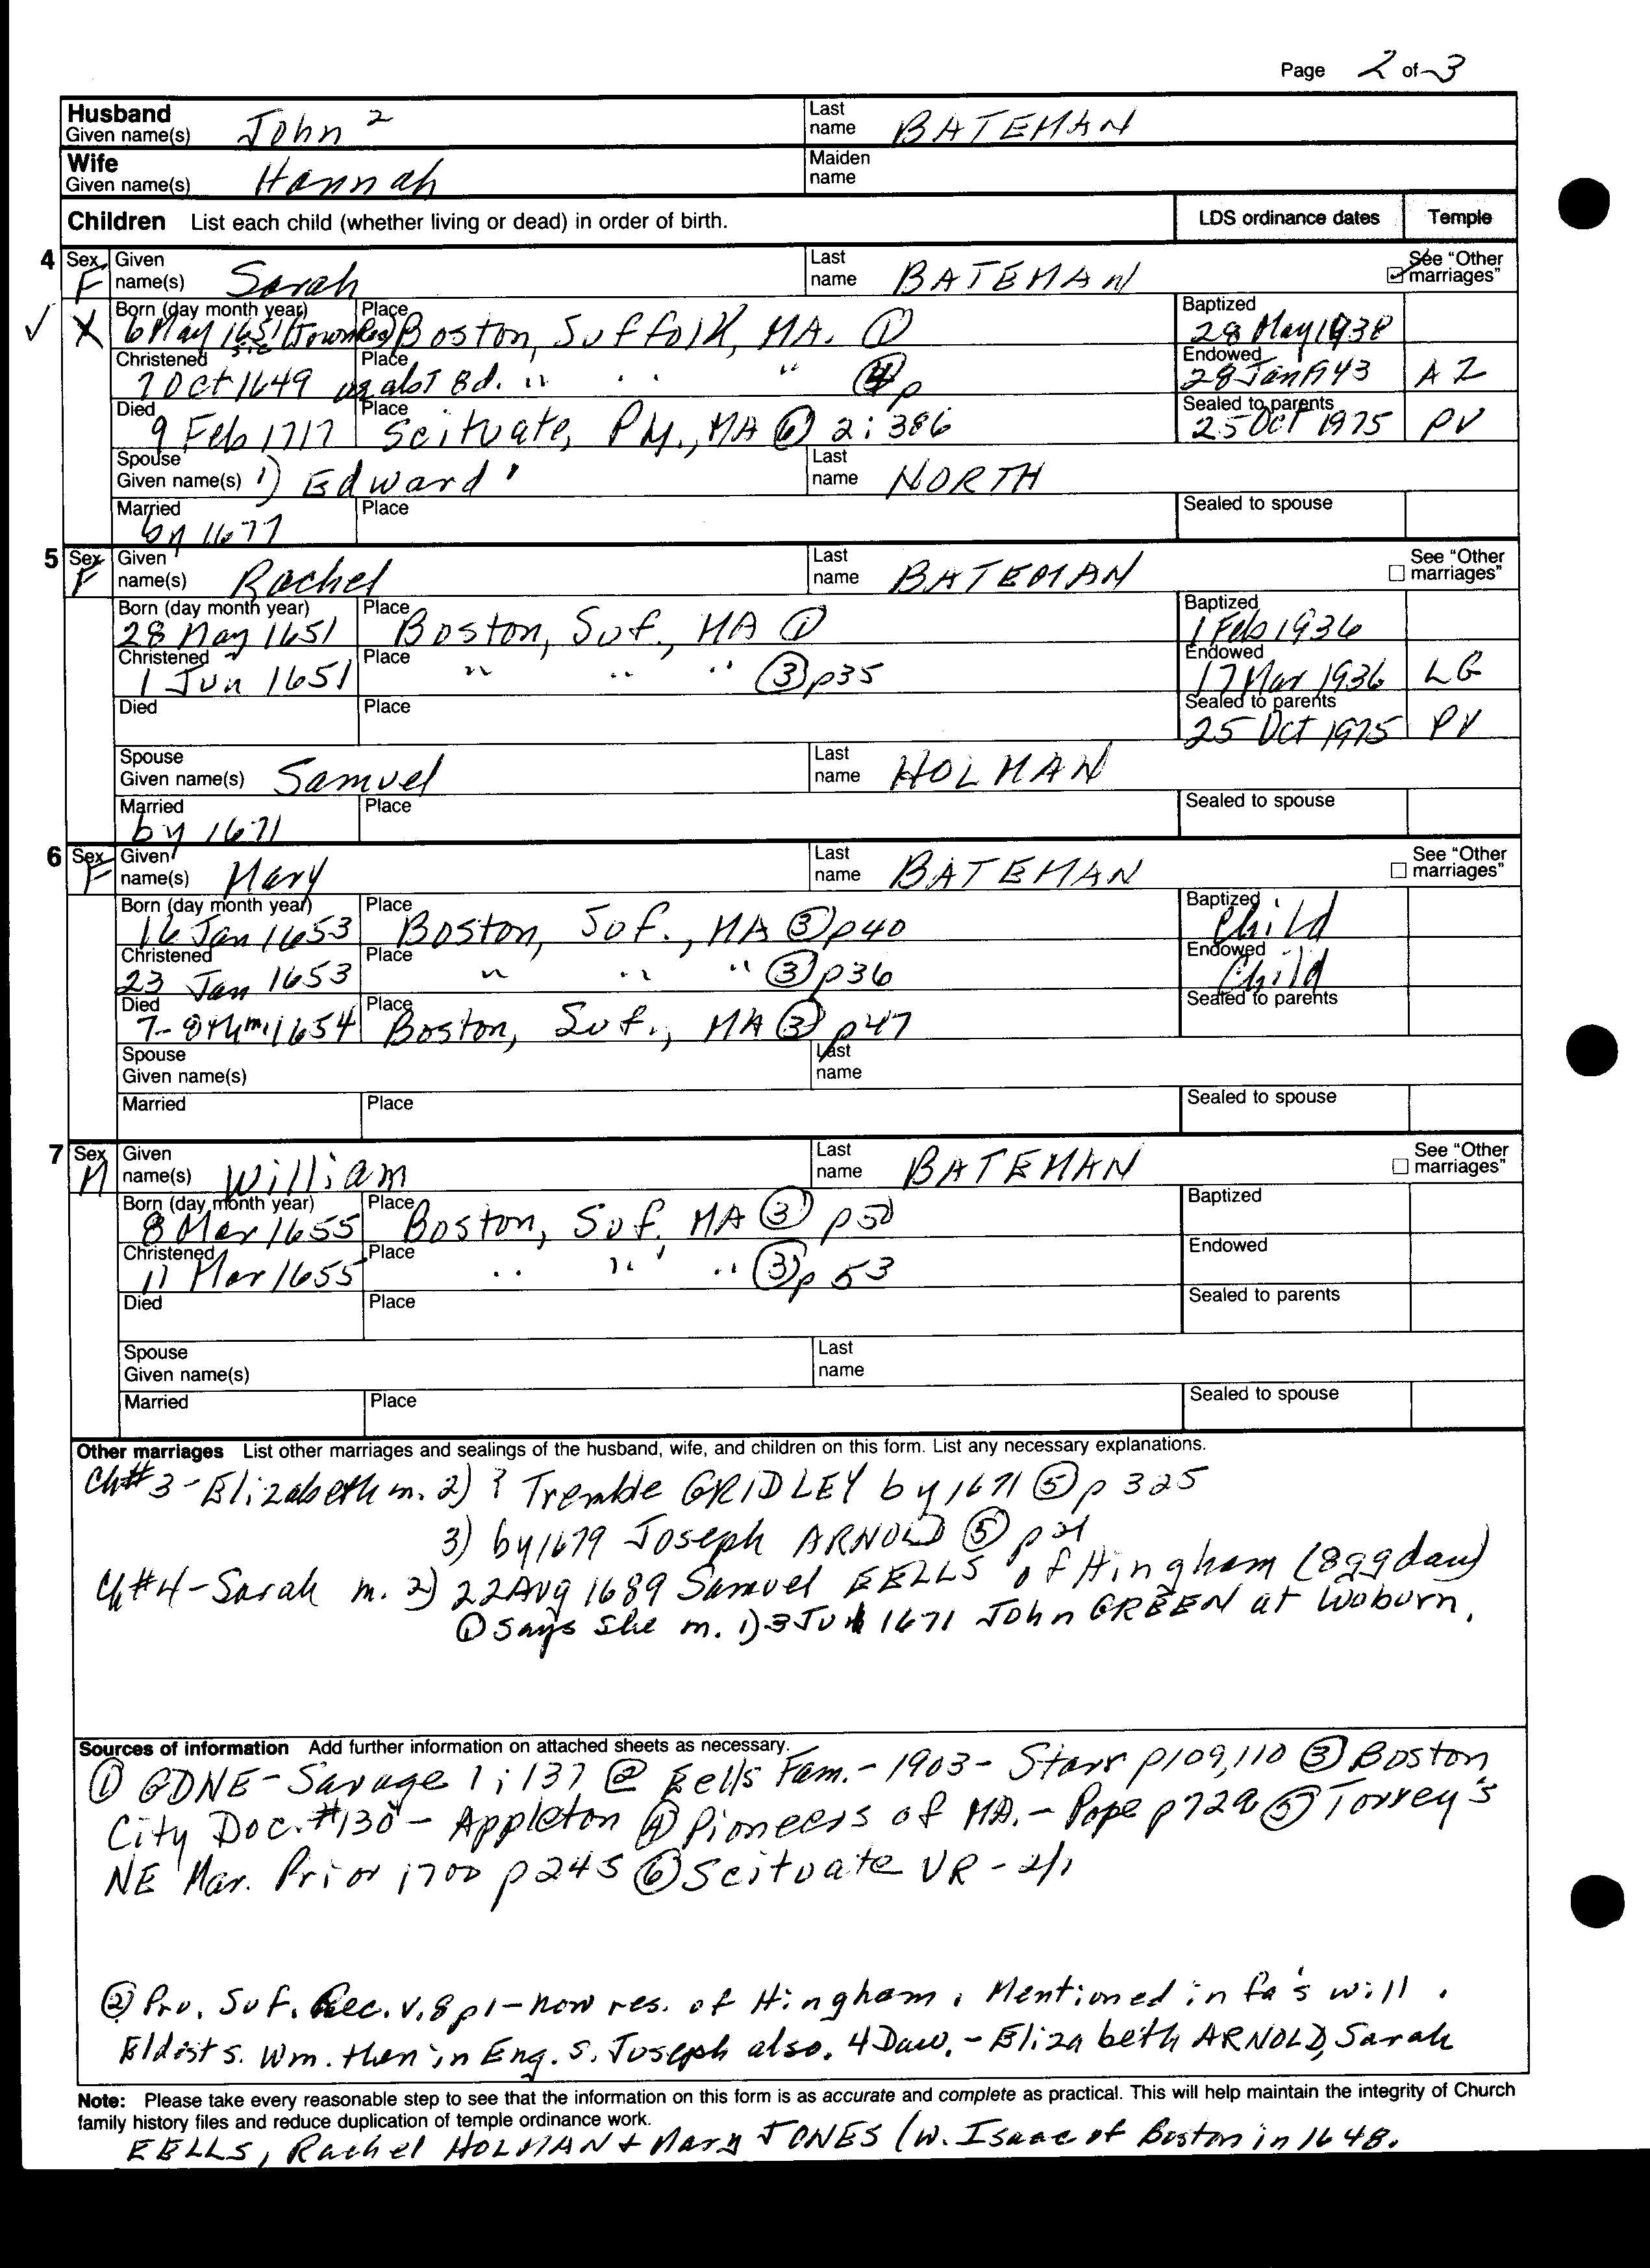 Page 2 of 3
Husband Given name(s) John 2 Last name BATEMAN
Wife Given name(s) Hannah Maiden name
Children List each child (whether living or dead) in order of birth. LDS ordinance dates Temple
4 Sex F Given name(s) Sarah Last name BATEMAN See "Other marriages"
✓ X Born (day month year) 6 May 1651 sic (Town Rec) Place Boston, Suffolk, MA. ① Baptized 28 May 1938
Christened 7 Oct 1649 Place " " " ④ p Endowed 28 Jan 1943 AZ
Died 9 Feb 1717 Place Scituate, Ply., MA ⑥ 2:386 Sealed to parents 25 Oct 1975 PV
Spouse Given name(s) 1) Edward Last name NORTH
Married by 1677 Place Sealed to spouse
5 Sex F Given name(s) Rachel Last name BATEMAN See "Other marriages"
Born (day month year) 28 May 1651 Place Boston, Suf., MA ① Baptized 1 Feb 1936
Christened 1 Jun 1651 Place " " " ③ p35 Endowed 17 Mar 1936 LG
Died Place Sealed to parents 25 Oct 1975 PV
Spouse Given name(s) Samuel Last name HOLMAN
Married by 1671 Place Sealed to spouse
6 Sex F Given name(s) Mary Last name BATEMAN See "Other marriages"
Born (day month year) 16 Jan 1653 Place Boston, Suf., MA ③ p40 Baptized Child
Christened 23 Jan 1653 Place " " " ③ p36 Endowed Child
Died 7-8th m 1654 Place Boston, Suf., MA ③ p47 Sealed to parents
Spouse Given name(s) Last name
Married Place Sealed to spouse
7 Sex M Given name(s) William Last name BATEMAN See "Other marriages"
Born (day month year) 8 Mar 1655 Place Boston, Suf. MA ③ p50 Baptized
Christened 11 Mar 1655 Place " " " ③ p 53 Endowed
Died Place Sealed to parents
Spouse Given name(s) Last name
Married Place Sealed to spouse
Other marriages List other marriages and sealings of the husband, wife, and children on this form. List any necessary explanations.
Ch#3-Elizabeth m. 2) ? Tremble GRIDLEY by 1671 ⑤ p 325
3) by 1679 Joseph ARNOLD ⑤ p 21
Ch#4-Sarah m. 2) 22 Aug 1689 Samuel EELLS of Hingham (8ggdau)
① says she m. 1) 3 Jun 1671 John GREEN at Woburn.
Sources of information Add further information on attached sheets as necessary.
① GDNE-Savage 1:137 ② Eells Fam.-1903-Starr p109,110 ③ Boston
City Doc. #130-Appleton ④ Pioneers of MA.-Pope p729 ⑤ Torrey's
NE Mar. Prior 1700 p245 ⑥ Scituate VR-2/1
② Pro. Suf. Rec. v.8 p1-now res. of Hingham. Mentioned in fa's will.
Eldist s. Wm. then in Eng. s. Joseph also. 4 Dau.-Elizabeth ARNOLD, Sarah
Note: Please take every reasonable step to see that the information on this form is as accurate and complete as practical. This will help maintain the integrity of Church
family history files and reduce duplication of temple ordinance work.
EELLS, Rachel HOLMAN + Mary JONES (w. Isaac of Boston in 1648.